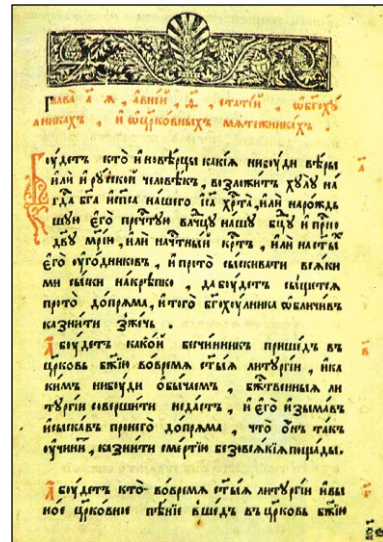 Глава а҃ я, а в ней, ѳ҃, статей, ѡ бг҃оху
лникахъ, и ѡ цр҃ковныхъ мятежникахъ.
Боудетъ кто иновѣрцы какія нибоуди вѣры
или и роуской человѣкъ, возложитъ хулу на
гд҃а бг҃а и сп҃са нашего іс҃а хр҃та, или на рожд
шую его преч҃тую влд҃чцу нашу бц҃у и прн҃о
дв҃у мр҃ію, или на ч҃тный кр҃тъ, или на ст҃ыхъ
его оугодниковъ, и про то сыскивати всяки
ми сыски накрѣпко, да боудетъ сыщется
про то допряма, и того бг҃охулника ѡбличивъ
казнити зжечь.
А боудетъ какой безчинникъ пришедъ въ
цр҃ковь бж҃ію во время ст҃ыя литургіи, и ка
кимъ нибоуди обычаемъ, бж҃твенныя ли
тургіи совершити недастъ, и его изымавъ
и сыскавъ про него допряма, что онъ такъ
оучинитъ, казнити смертію безо всякія пощады.
А боудетъ кто во время ст҃ыя литургіи и в ы
ное цр҃ковное пѣніе вшедъ въ цр҃ковь бж҃ію
а҃
в҃
г҃